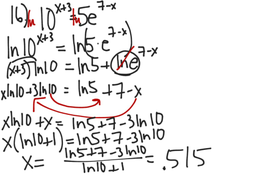 16) ln 10^{x+3} = ln 5e^{7-x}
ln 10^{x+3} = ln(5·e^{7-x})
(x+3) ln10 = ln5 + ln e^{7-x}
x ln10 + 3 ln10 = ln5 + 7 - x
x ln10 + x = ln5 + 7 - 3 ln10
x(ln10 + 1) = ln5 + 7 - 3 ln10
x = \frac{ln5 + 7 - 3 ln10}{ln10 + 1} = .515